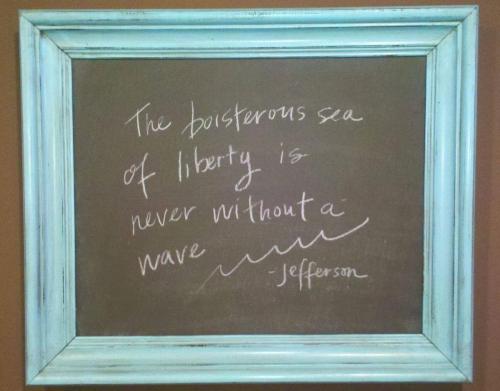 The boisterous sea
of liberty is
never without a
wave
-Jefferson